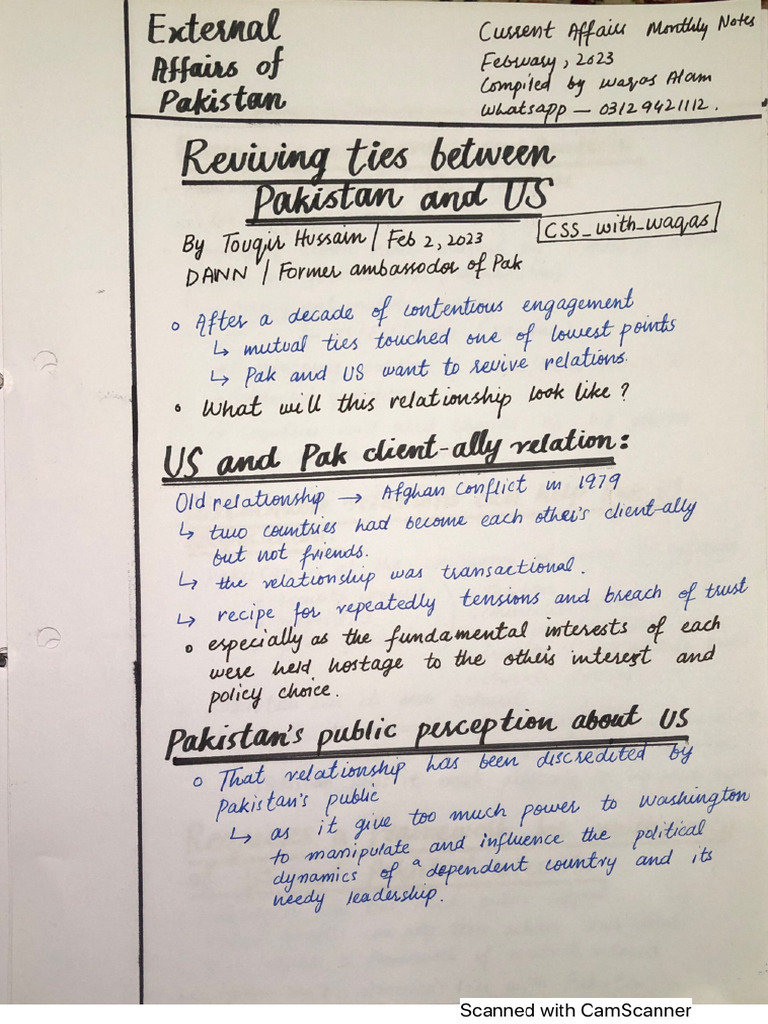 External
Affairs of
Pakistan
Current Affairs Monthly Notes
February, 2023
Compiled by Waqas Alam
Whatsapp – 03129421112.
Reviving ties between
Pakistan and US
By Touqir Hussain / Feb 2, 2023
CSS_with_waqas
DANN / Former ambassodor of Pak
o After a decade of contentious engagement
↳ mutual ties touched one of lowest points
↳ Pak and US want to revive relations.
• What will this relationship look like?
US and Pak client-ally relation:
Old relationship → Afghan Conflict in 1979
↳ two countries had become each other's client-ally
but not friends.
↳ the relationship was transactional.
↳ recipe for repeatedly tensions and breach of trust
• especially as the fundamental interests of each
were held hostage to the other's interest and
policy choice.
Pakistan's public perception about US
o That relationship has been discredited by
Pakistan's public
↳ as it give too much power to Washington
to manipulate and influence the political
dynamics of a dependent country and its
needy leadership.
Scanned with CamScanner